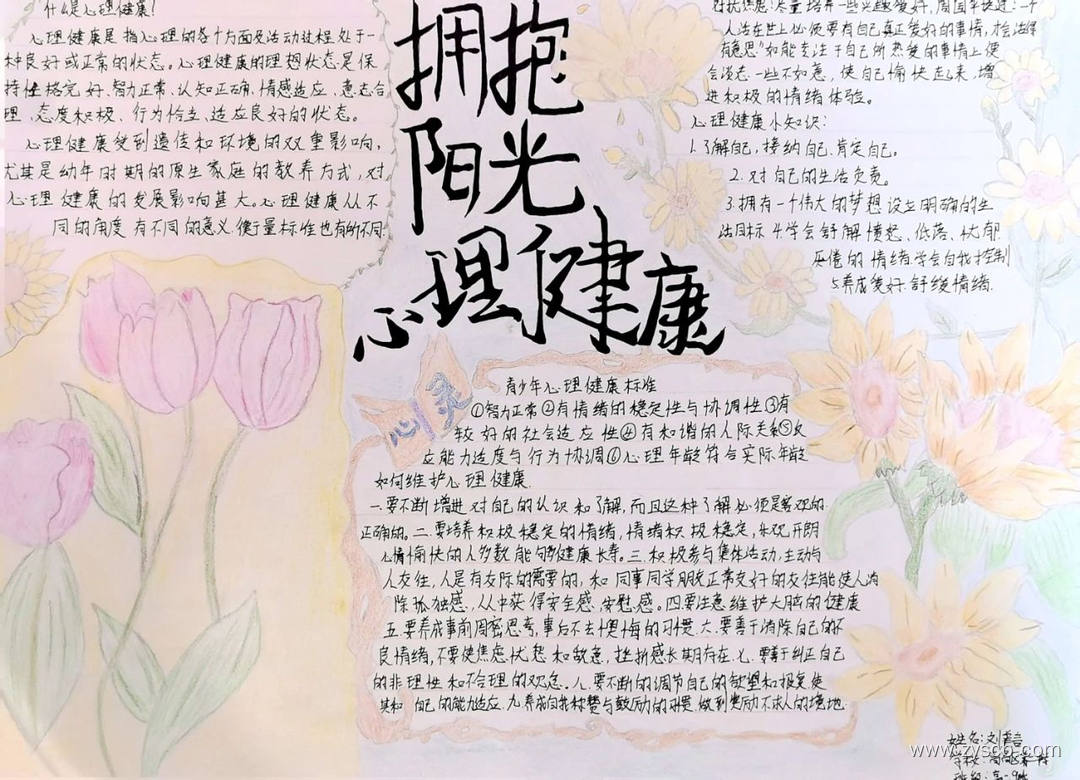 什么是心理健康!
心理健康是指心理的各个方面及活动过程处于一
种良好或正常的状态。心理健康的理想状态是保
持性格完好、智力正常、认知正确、情感适应、意志合
理、态度积极、行为恰当、适应良好的状态。
心理健康受到遗传和环境的双重影响,
尤其是幼年时期的原生家庭的教养方式,对
心理健康的发展影响甚大。心理健康从不
同的角度有不同的意义,衡量标准也有所不同
拥抱
阳光
心理健康
尽量培养一些兴趣爱好,
人活在世上必须要有自己真正爱好的事情,才会活得
有意思"如能专注于自己所热爱的事情上便
会淡忘一些不如意,使自己愉快起来,增
进积极的情绪体验。
心理健康小知识:
1.了解自己,接纳自己.肯定自己。
2.对自己的生活负责。
3.拥有一个伟大的梦想设立明确的生
活目标 4.学会舒解愤怒、低落、忧郁
厌倦的情绪.学会自我控制
5.养成爱好.舒缓情绪.
心灵
青少年心理健康标准
①智力正常②有情绪的稳定性与协调性③有
较好的社会适应性④有和谐的人际关系⑤反
应能力适度与行为协调⑥心理年龄符合实际年龄
如何维护心理健康
一.要不断增进对自己的认识和了解,而且这种了解必须是客观的.
正确的。二.要培养积极稳定的情绪,情绪积极稳定,乐观开朗
心情愉快的人多数能够健康长寿。三.积极参与集体活动,主动与
人交往,人是有交际的需要的,和同事同学朋友正常交好的交往能使人消
除孤独感,从中获得安全感、安慰感。四.要注意维护大脑的健康
五.要养成事前周密思考,事后不去懊悔的习惯.六.要善于消除自己的不
良情绪,不要使焦虑.忧愁和敌意,挫折感长期存在.七.要善于纠正自己
的非理性和不合理的观念。八.要不断的调节自己的欲望和报复使
其和自己的能力适应.九.养成自我称赞与鼓励的习惯.做到赞励不求人的境地.
姓名:刘
www.zyscb.com
学校:
班级:高一9班